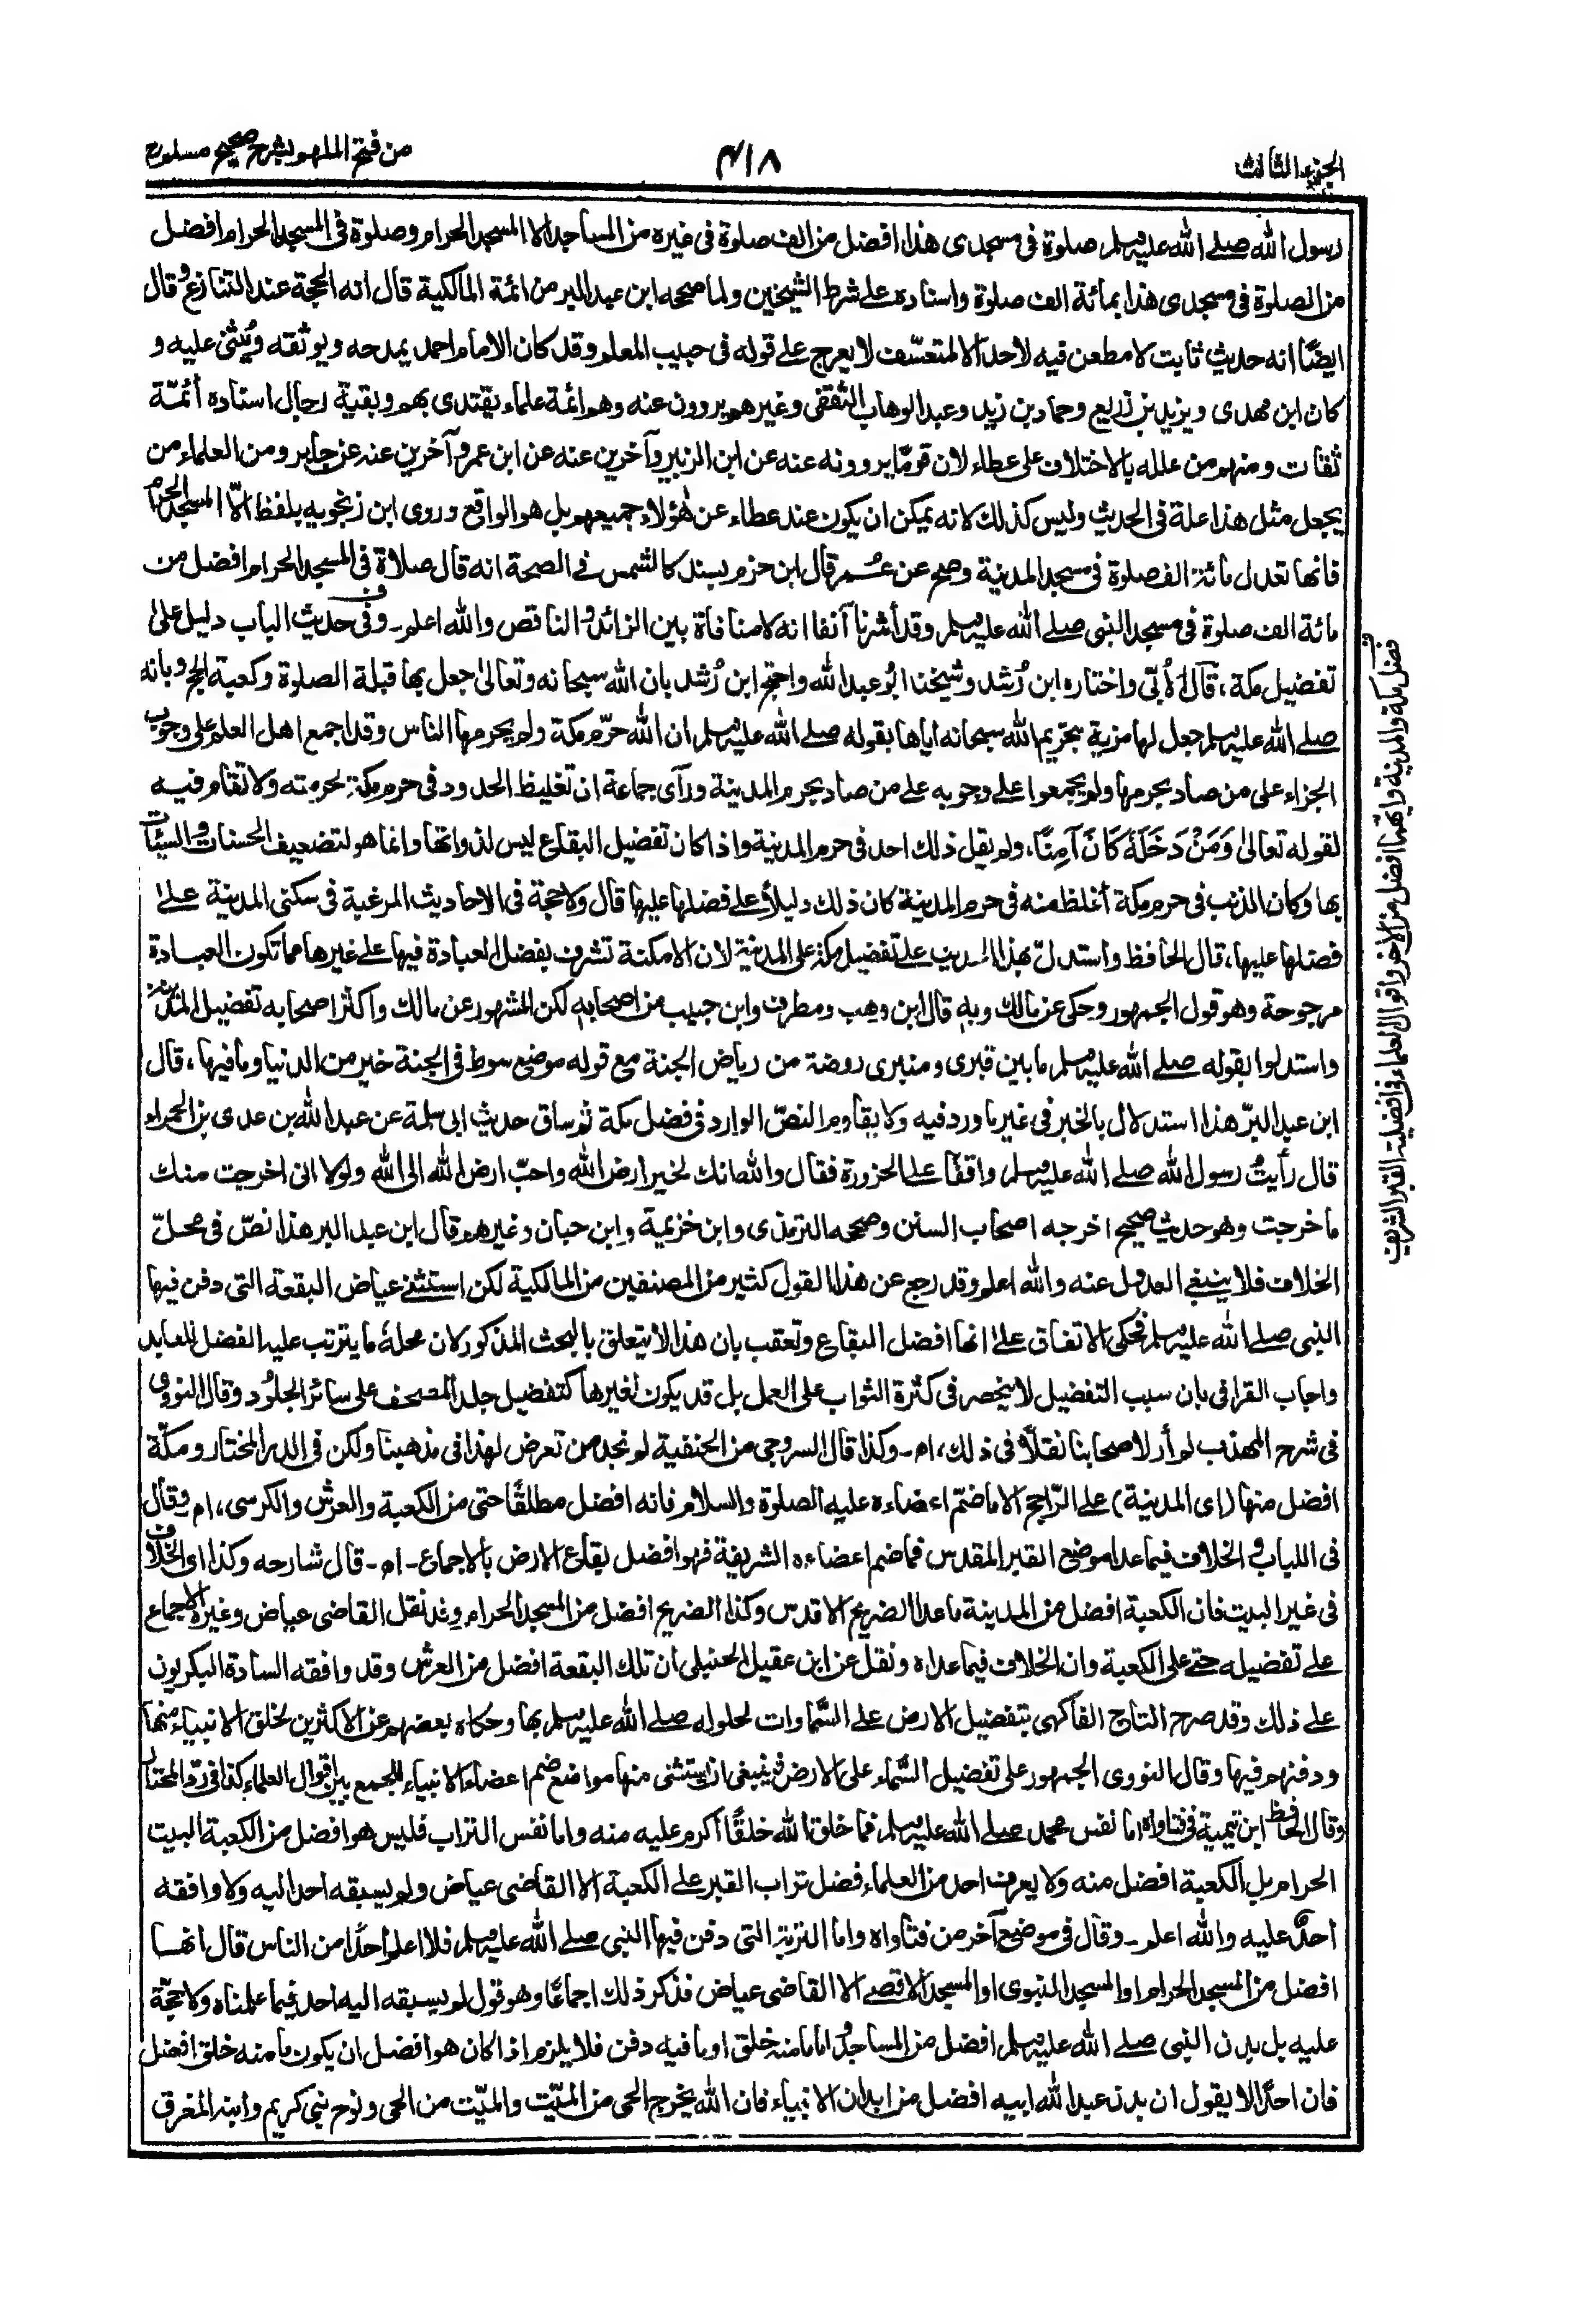 الجزء الثالث
٤١٨
من فتح الملهم بشرح صحيح مسلم
رسول الله صلے الله عليه وسلم صلوة فى مسجدى هذا افضل من الف صلوة فى غيره من المساجد الا المسجد الحرام وصلوة فى المسجد الحرام افضل
من الصلوة فى مسجدى هذا بمائة الف صلوة واسناده علے شرط الشيخين ولما صححه ابن عبد البر من ائمة المالكية قال انه الحجة عند التنازع وقال
ايضًا انه حديث ثابت لا مطعن فيه لاحد الا لمتعسّف لا يعرج علے قوله فى حبيب المعلم وقد كان الامام احمد يمدحه ويوثقه ويُثنى عليه و
كان ابن مهدى ويزيد بن زريع وحماد بن زيد وعبد الوهاب الثقفى وغيرهم يروون عنه وهم ائمة علماء يقتدى بهم وبقية رجال اسناده أئمّة
ثقات ومنهم من علله بالاختلاف على عطاء لان قومًا يروونه عنه عن ابن الزبير وآخرين عنه عن ابن عمر وآخرين عنه عن جابر ومن العلماء من
يجعل مثل هذا علة فى الحديث وليس كذلك لانه يمكن ان يكون عند عطاء عن هٰؤلاء جميعهم بل هو الواقع وروى ابن زنجويه بلفظ الّا المسجد الحرام
فانها تعدل مائة الف صلوة فى مسجد المدينة وصح عن عُمر قال ابن حزم بسند كالشمس فے الصحة انه قال صلاة فى المسجد الحرام افضل من
مائة الف صلوة فى مسجد النبى صلے الله عليه وسلم وقد أشرنا آنفا انه لا منافاة بين الزائد والناقص والله اعلم ـ وفى حديث الباب دليل علىٰ
تفضيل مكة، قال الأُبّى واختاره ابن رُشد وشيخنا ابُو عبد الله واحتج ابن رُشد بان الله سبحانه وتعالىٰ جعل بها قبلة الصلوة وكعبة الحج وبانه
صلے الله عليه وسلم جعل لها مزية بتحريم الله سبحانه اياها بقوله صلے الله عليه وسلم ان الله حرّم مكة ولم يحرمها الناس وقد اجمع اهل العلم على وجوب
الجزاء على من صاد بحرمها ولم يجمعوا علے وجوبه علے من صاد بحرم المدينة ورأى جماعة ان تغليظ الحدود فى حرم مكة لحرمته ولا تقام فيه
لقوله تعالىٰ وَمَنْ دَخَلَهٗ كَانَ آمِنًا، ولم يقل ذلك احد فى حرم المدينة واذا كان تفضيل البقاع ليس لذواتها وانما هو لتضعيف الحسنات والسيئات
بها وكان الذنب فى حرم مكة أغلظ منه فى حرم المدينة كان ذلك دليلاً علے فضلها عليها قال ولا حجة فى الاحاديث المرغبة فى سكنى المدينة علےٰ
فضلها عليها، قال الحافظ واستدلّ بهذا الحديث علے تفضيل مكة على المدينة لان الامكنة تشرف بفضل العبادة فيها علے غيرها مما تكون العبادة
مرجوحة وهو قول الجمهور وحكى عن مالك وبه قال ابن وهب ومطرف وابن حبيب من اصحابه لكن المشهور عن مالك واكثر اصحابه تفضيل المدينة
واستدلوا بقوله صلے الله عليه وسلم ما بين قبرى ومنبرى روضة من رياض الجنة مع قوله موضع سوط فى الجنة خير من الدنيا وما فيها، قال
ابن عبد البرّ هذا استدلال بالخبر فى غير ما ورد فيه ولا يقاوم النصّ الوارد فى فضل مكة ثم ساق حديث ابى سلمة عن عبد الله بن عدى بن الحمراء
قال رأيتُ رسول الله صلے الله عليه وسلم واقفًا علے الحزورة فقال والله انك لخير ارض الله واحبّ ارض الله الى الله ولولا انى اخرجت منك
ما خرجت وهو حديث صحيح اخرجه اصحاب السنن وصححه الترمذى وابن خزيمة وابن حبان وغيرهم قال ابن عبد البر هذا نصّ فى محلّ
الخلاف فلا ينبغے العدول عنه والله اعلم وقد رجع عن هذا القول كثير من المصنفين من المالكية لكن استثنےٰ عياض البقعة التى دفن فيها
النبى صلے الله عليه وسلم فحكى الاتفاق علےٰ انها افضل البقاع وتعقب بان هذا لا يتعلق بالبحث المذكور لان محلهٗ ما يترتب عليه الفضل للعابد
واجاب القرافى بان سبب التفضيل لا ينحصر فى كثرة الثواب على العمل بل قد يكون لغيرها كتفضيل جلد المصحف على سائر الجلُود وقال النووى
فى شرح المهذب لم أر لاصحابنا نقلًا فى ذلك، اھ ـ وكذا قال السروجى من الحنفية لم نجد من تعرض لهذا فى مذهبنا ولكن فى الدر المختار ومكّة
افضل منها (اى المدينة) علے الرّاجح الا ما ضمّ اعضاءه عليه الصلوة والسلام فانه افضل مطلقًا حتى من الكعبة والعرش والكرسى، اھ وقال
فى اللباب والخلاف فيما عدا موضع القبر المقدس فما ضم اعضاءه الشريفة فهو افضل بقاع الارض بالاجماع ـ اھ ـ قال شارحه وكذا اى الخلاف
فى غير البيت فان الكعبة افضل من المدينة ما عدا الضريح الاقدس وكذا الضريح افضل من المسجد الحرام وقد نقل القاضى عياض وغيره الاجماع
علے تفضيله حتے على الكعبة وان الخلاف فيما عداه ونقل عن ابن عقيل الحنبلى ان تلك البقعة افضل من العرش وقد وافقه السادة البكريون
علے ذلك وقد صرح التاج الفاكهى بتفضيل الارض علے السّماوات لحلوله صلے الله عليه وسلم بها وحكاه بعضهم عن الاكثرين لخلق الانبياء منها
ودفنهم فيها وقال النووى الجمهور على تفضيل السّماء على الارض فينبغى ان يستثنى منها مواضع ضم اعضاء الانبياء للجمع بين اقوال العلماء كذا فى ردّ المختار
وقال الحافظ ابن تيمية فى فتاواه اما نفس محمد صلے الله عليه وسلم فما خلق الله خلقًا اكرم عليه منه واما نفس التراب فليس هو افضل من الكعبة البيت
الحرام بل الكعبة افضل منه ولا يعرف احد من العلماء فضل تراب القبر علے الكعبة الا القاضى عياض ولم يسبقه احد اليه ولا وافقه
احدٌ عليه والله اعلم ـ وقال فى موضع آخر من فتاواه واما التربة التى دفن فيها النبى صلے الله عليه وسلم فلا اعلم احدًا من الناس قال انها
افضل من المسجد الحرام او المسجد النبوى او المسجد الاقصے الا القاضى عياض فذكر ذلك اجماعًا وهو قول لم يسبقه اليه احد فيما علمناه ولا حجّة
عليه بل بدن النبى صلے الله عليه وسلم افضل من المساجد واما ما منه خلق او ما فيه دفن فلا يلزم اذا كان هو افضل ان يكون ما منه خلق افضل
فان احدًا لا يقول ان بدن عبد الله ابيه افضل من ابدان الانبياء فان الله يخرج الحى من الميّت والميّت من الحى ونوح نبى كريم وابنه المغرق
فضل مكة والمدينة وايتهما افضل من الاخر واقوال العلماء فى افضلية القبر الشريف